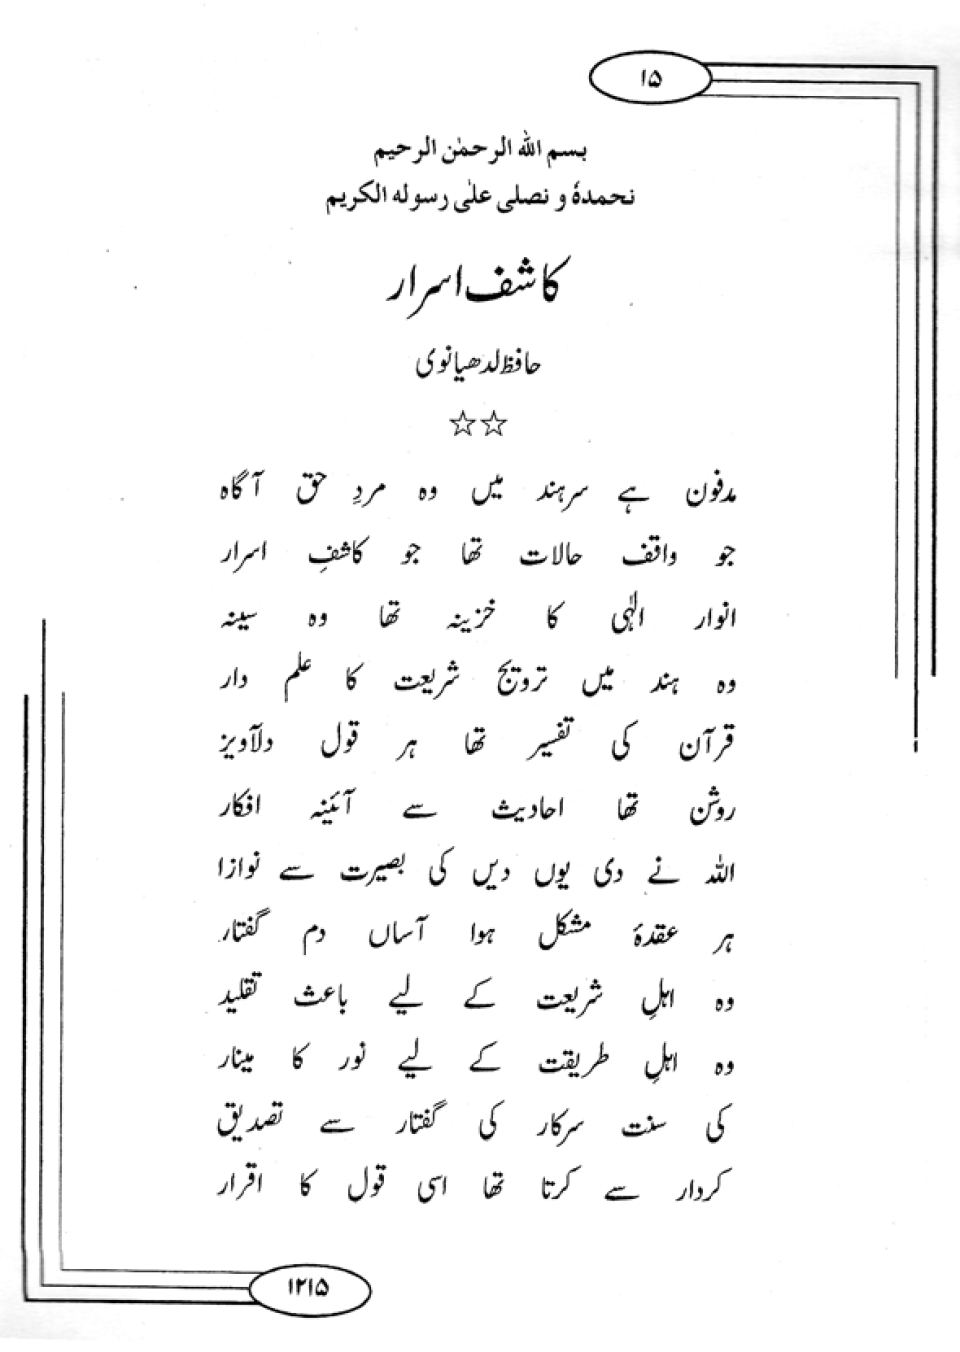 ۱۵
بسم الله الرحمٰن الرحيم
نحمدهٗ و نصلى علىٰ رسوله الكريم
کاشف اسرار
حافظ لدھیانوی
☆☆
مدفون ہے سرہند میں وہ مردِ حق آگاہ
جو واقف حالات تھا جو کاشفِ اسرار
انوار الٰہی کا خزینہ تھا وہ سینہ
وہ ہند میں ترویج شریعت کا علم دار
قرآن کی تفسیر تھا ہر قول دلآویز
روشن تھا احادیث سے آئینہ افکار
اللہ نے دی یوں دیں کی بصیرت سے نوازا
ہر عقدۂ مشکل ہوا آساں دم گفتار
وہ اہلِ شریعت کے لیے باعث تقلید
وہ اہلِ طریقت کے لیے نور کا مینار
کی سنت سرکار کی گفتار سے تصدیق
کردار سے کرتا تھا اسی قول کا اقرار
۱۲۱۵